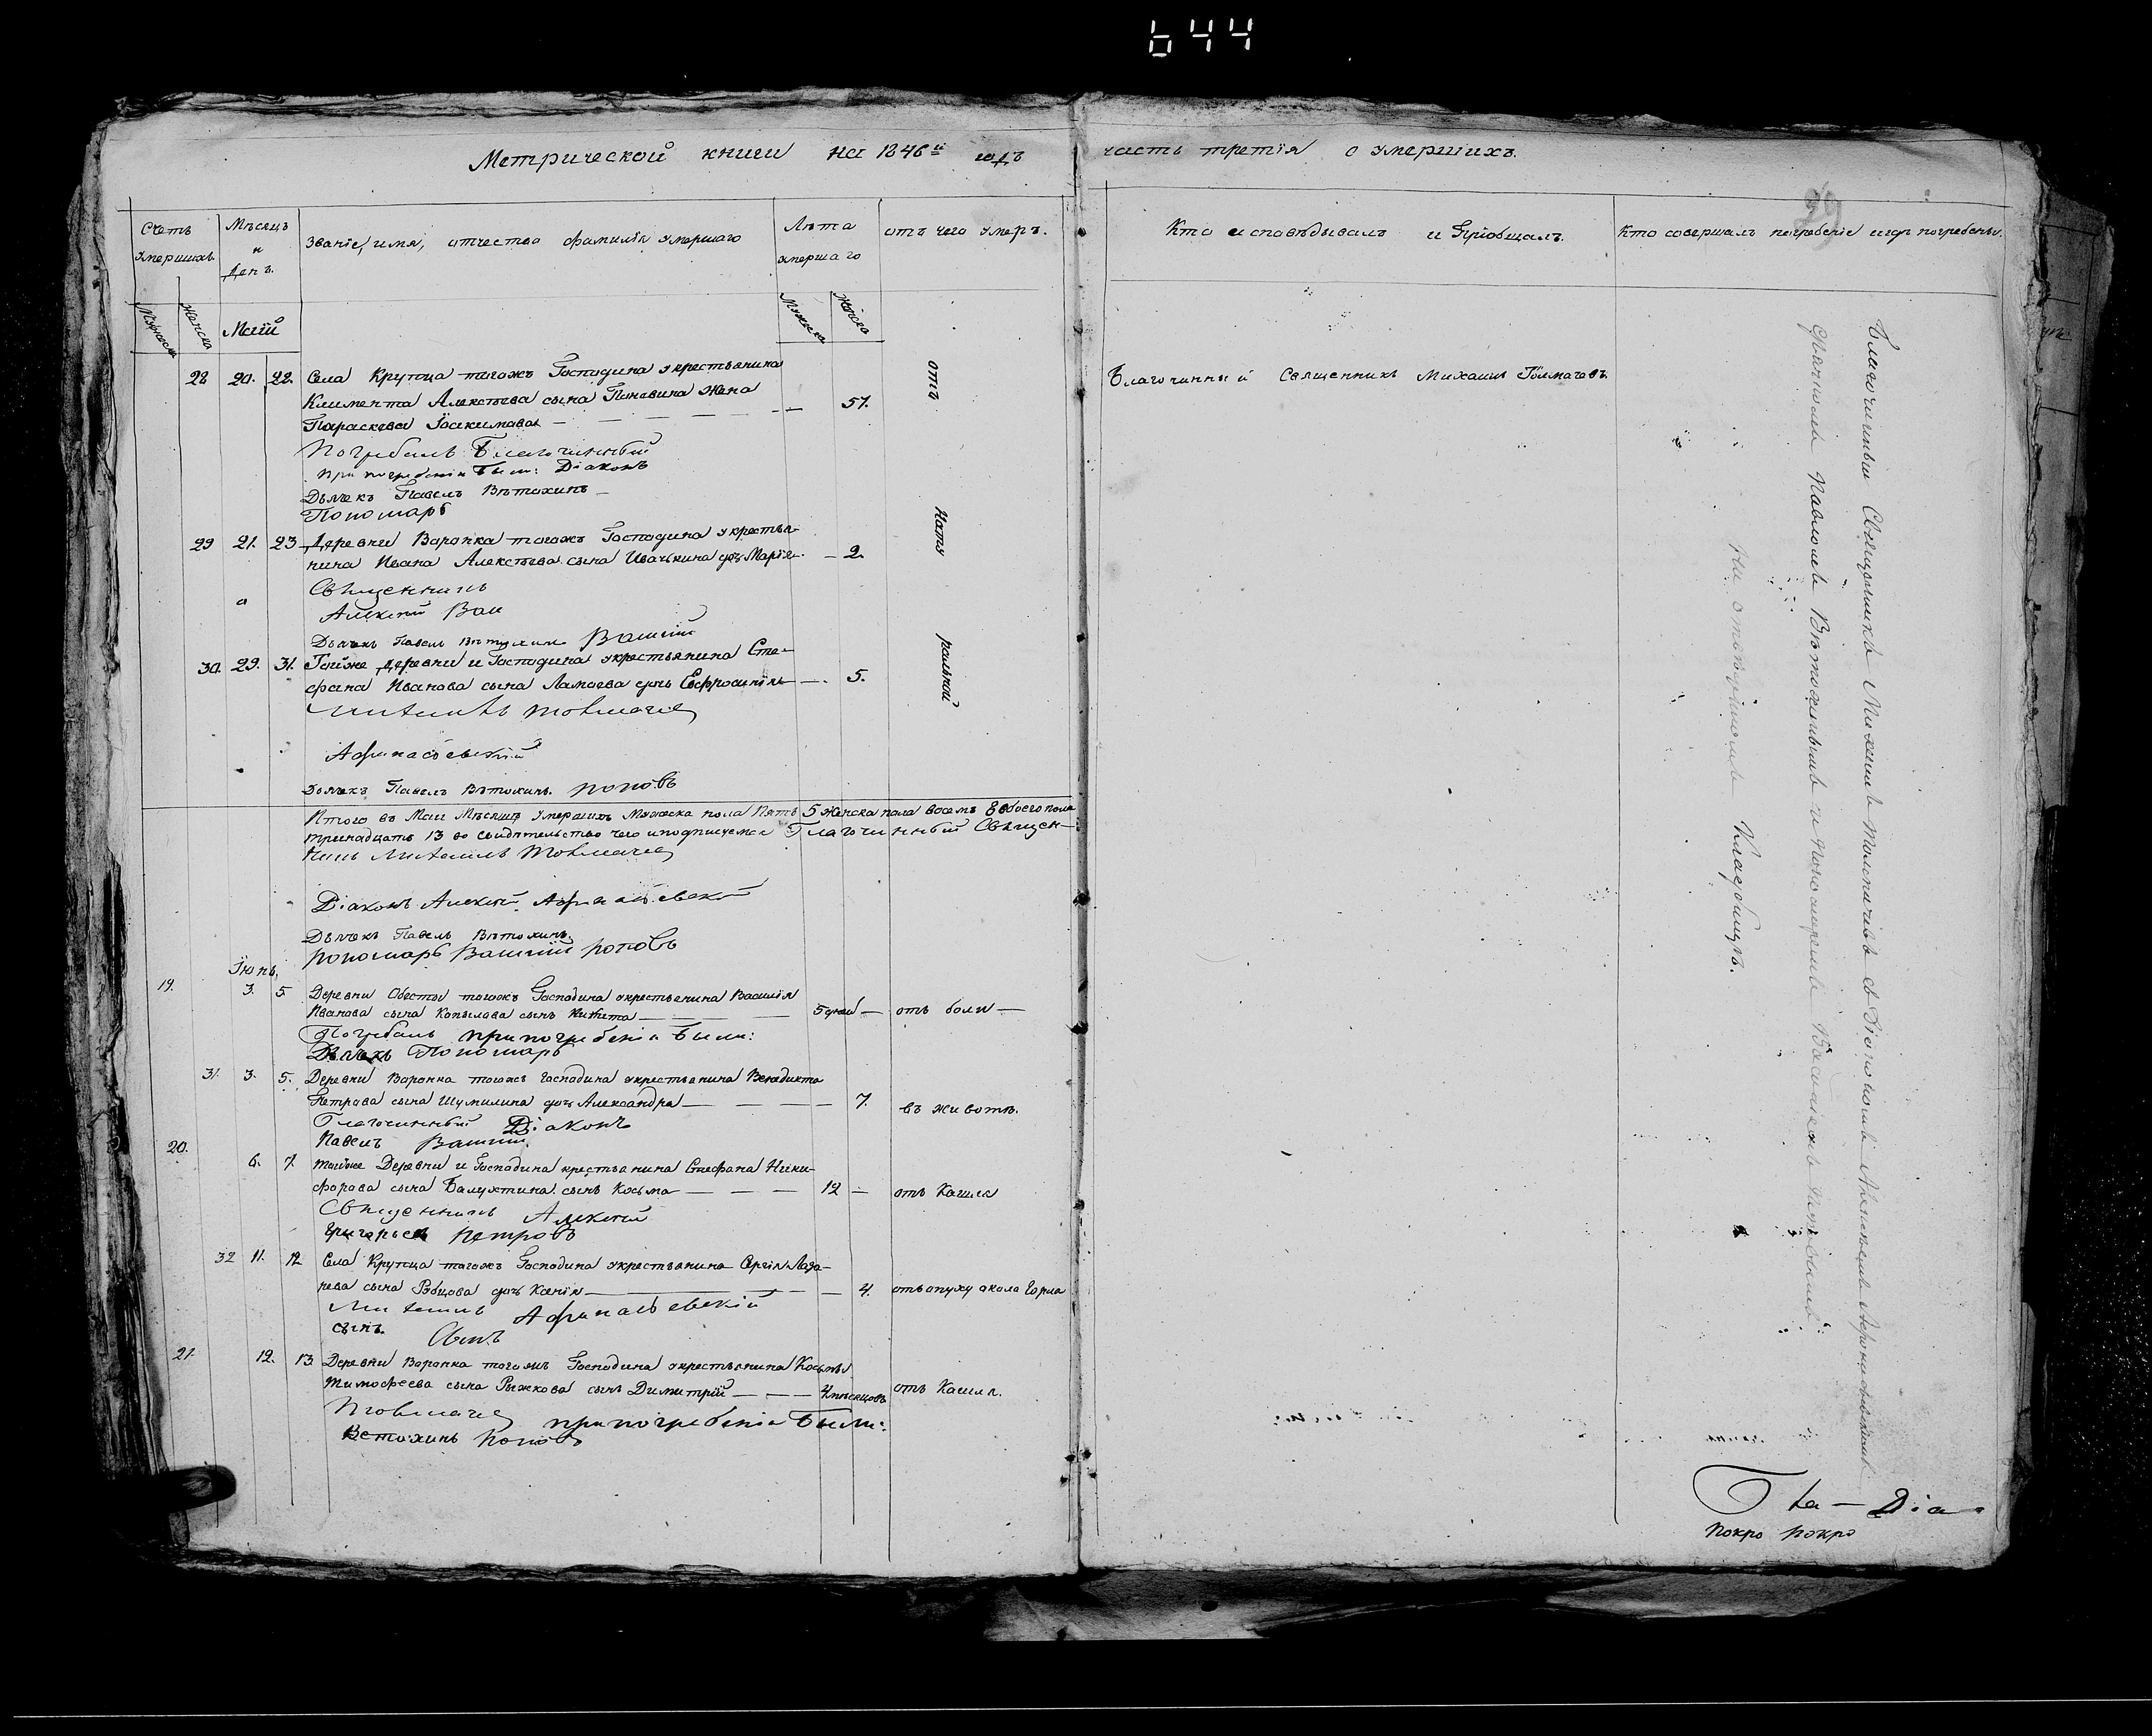 644
Метрической книги на 1846й годъ часть третія о умершихъ.
Счетъ умершихъ
Мѣсяцъ и день.
званіе, имя, отчество фамилія умершаго
Лѣта умершаго
отъ чего умеръ.
Кто исповѣдывалъ и Пріобщалъ.
Кто совершалъ погребеніе и гдѣ погребены.
Мужеска
Женска
Маій
Мужеска
Женска
28 20. 22. Села Крутца тогожъ Господина укрестьянина
Климента Алексѣева сына жена 57.
Параскева Іоакимова
Благочинный Священникъ Михаилъ Толмачевъ.
Погребалъ Благочинный
при погребеніи Были: Діаконъ
Дьячекъ Павелъ Вѣтохинъ
Пономарь
отъ
натуральной
29 21. 23 Деревни Воронка тогожъ Господина укрестья-
нина Ивана Алексѣева сына дочь Марія 2.
Священникъ
Алексѣй Вас
Дьячекъ Павелъ Вѣтохинъ Василій
30. 29. 31. Тойже деревни и Господина укрестьянина Сте-
фана Иванова сына дочь Евфросинія 5.
Михаилъ Товмачев
Афанасьевскій
Дьячекъ Павелъ Вѣтохинъ. поповъ
Итого въ Маіи Мѣсяцѣ умершихъ Мужеска пола Пять 5 женска пола восемь 8 обоего пола
тринадцать 13 во свидѣтельство чего и подписуемся Благочинный Священ-
никъ Михаилъ Товмачев
Діаконъ Алексѣй Афанасьевскій
Дьячекъ Павелъ Вѣтохинъ.
пономарь Василій поповъ
Іюнь.
19. 3. 5 Деревни тогожъ Господина укрестьянина Василія
Иванова сына Копылова сынъ Никита 5 дней отъ боли
Погребалъ при погребеніи Были:
Дьячекъ Пономарь
31. 3. 5. Деревни Воронка тогожъ господина укрестьянина Венедикта
Петрова сына Шумилина дочь Александра 7. въ животѣ.
Благочинный Діаконъ
Павелъ Василій
20. 6. 7. тойже Деревни и Господина крестьянина Стефана Ники-
форова сына Балухтина сынъ Косьма 12 отъ Кашля
Священникъ Алексѣй
Григорьевъ петровъ
32 11. 12 Села Крутца тогожъ Господина укрестьянина Сергія Лаза-
рева сына дочь Ксенія 4. отъ опуху окола горла
Михаилъ Афанасьевскій
сынъ. Сынъ
21. 12. 13 Деревни Воронка тогожъ Господина укрестьянина Косьмы
Тимофеева сына Рыжкова сынъ Димитрій 4 мѣсяцовъ отъ Кашля.
Товмачев при погребеніи Были:
Ветохинъ поповъ
Благочинный Священникъ Михаилъ Толмачевъ съ Діакономъ Алексѣемъ Афанасьевскимъ
Дьячкомъ Павломъ Вѣтохинымъ и пономаремъ Василіемъ
на отведенномъ Кладбищѣ.
Діа
покро покро